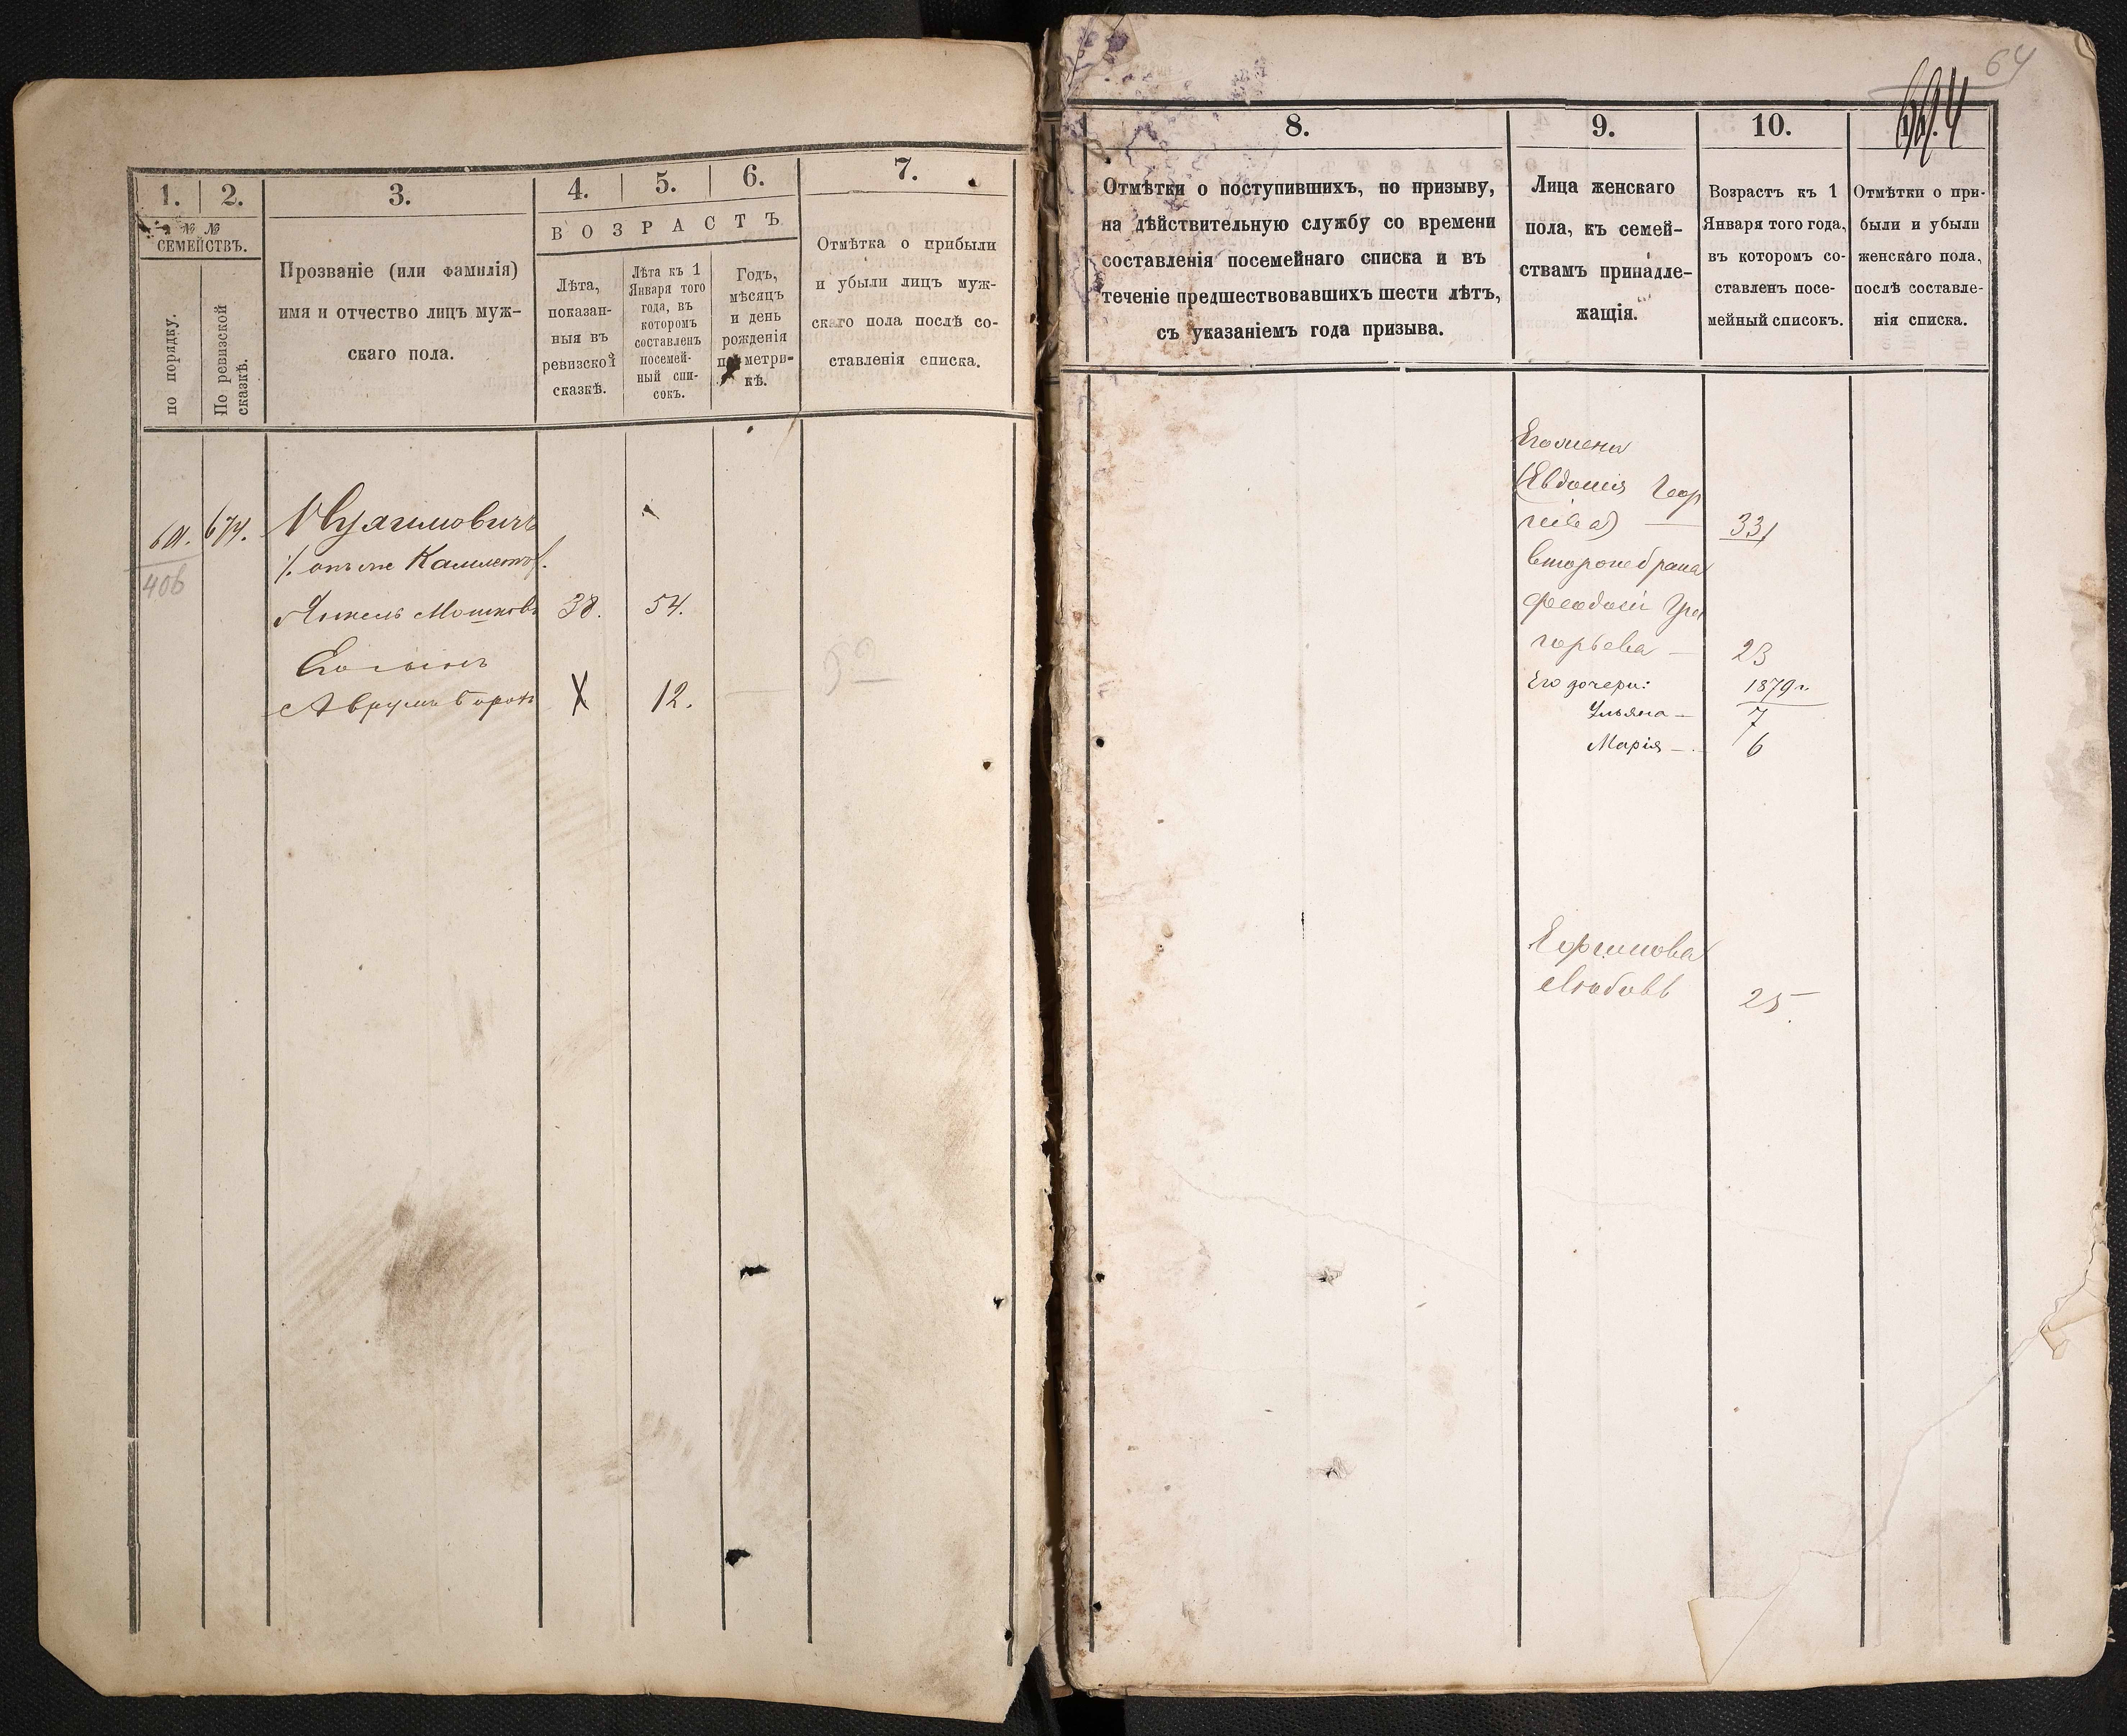 1.
2.
3.
4.
5.
6.
7.
№ №
СЕМЕЙСТВЪ.
по порядку.
По ревизской
сказкѣ.
Прозваніе (или фамилія)
имя и отчество лицъ муж-
скаго пола.
ВОЗРАСТЪ
Лѣта,
показан-
ныя въ
ревизской
сказкѣ.
Лѣта къ 1
Января того
года, въ
которомъ
составленъ
посемей-
ный спи-
сокъ.
Годъ,
мѣсяцъ
и день
рожденія
по метри-
кѣ.
Отмѣтка о прибыли
и убыли лицъ муж-
скаго пола послѣ со-
ставленія списка.
674.
406
38. 54.
Его сынъ
12.
64
8.
9.
10.
Отмѣтки о поступившихъ, по призыву,
на дѣйствительную службу со времени
составленія посемейнаго списка и въ
теченіе предшествовавшихъ шести лѣтъ,
съ указаніемъ года призыва.
Лица женскаго
пола, къ семей-
ствамъ принадле-
жащія.
Возрастъ къ 1
Января того года,
въ которомъ со-
ставленъ посе-
мейный списокъ.
Отмѣтки о при-
были и убыли
женскаго пола,
послѣ составле-
нія списка.
Его жена
Евдокія Геор
гіева) — 33
горьева — 23
Его дочери: 1879 г.
Ульяна — 7
Марія — 6
Любовь 25